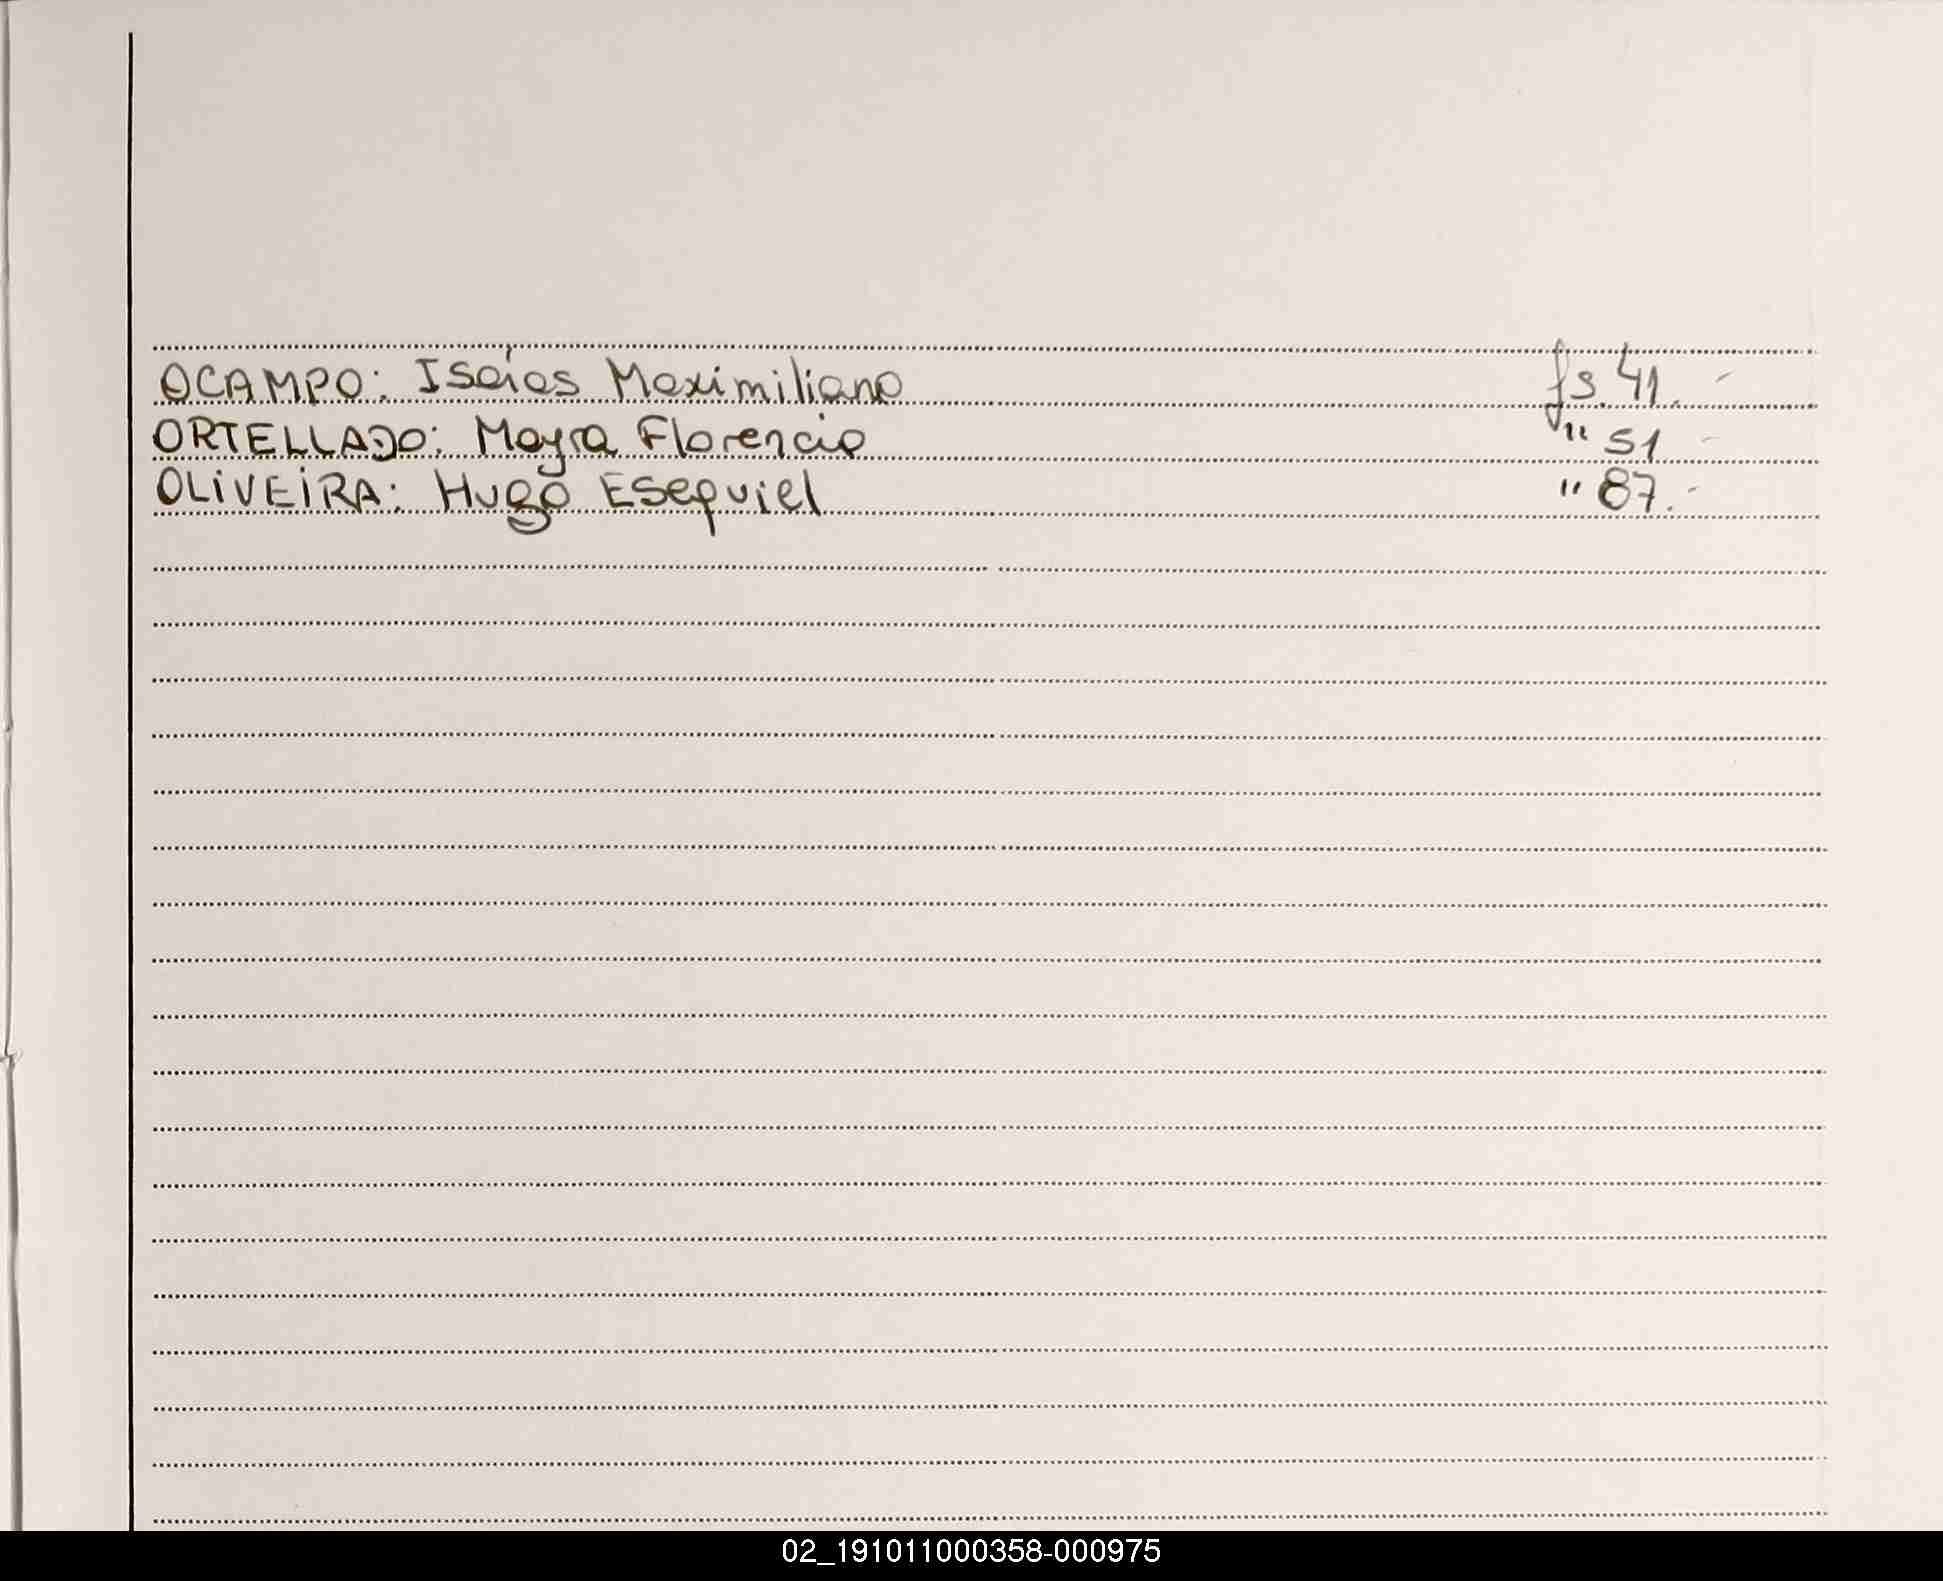 OCAMPO: Isaías Maximiliano fs. 41. -
ORTELLADO: Mayra Florencia " 51 -
OLIVEIRA: Hugo Esequiel " 87. -
02_191011000358-000975